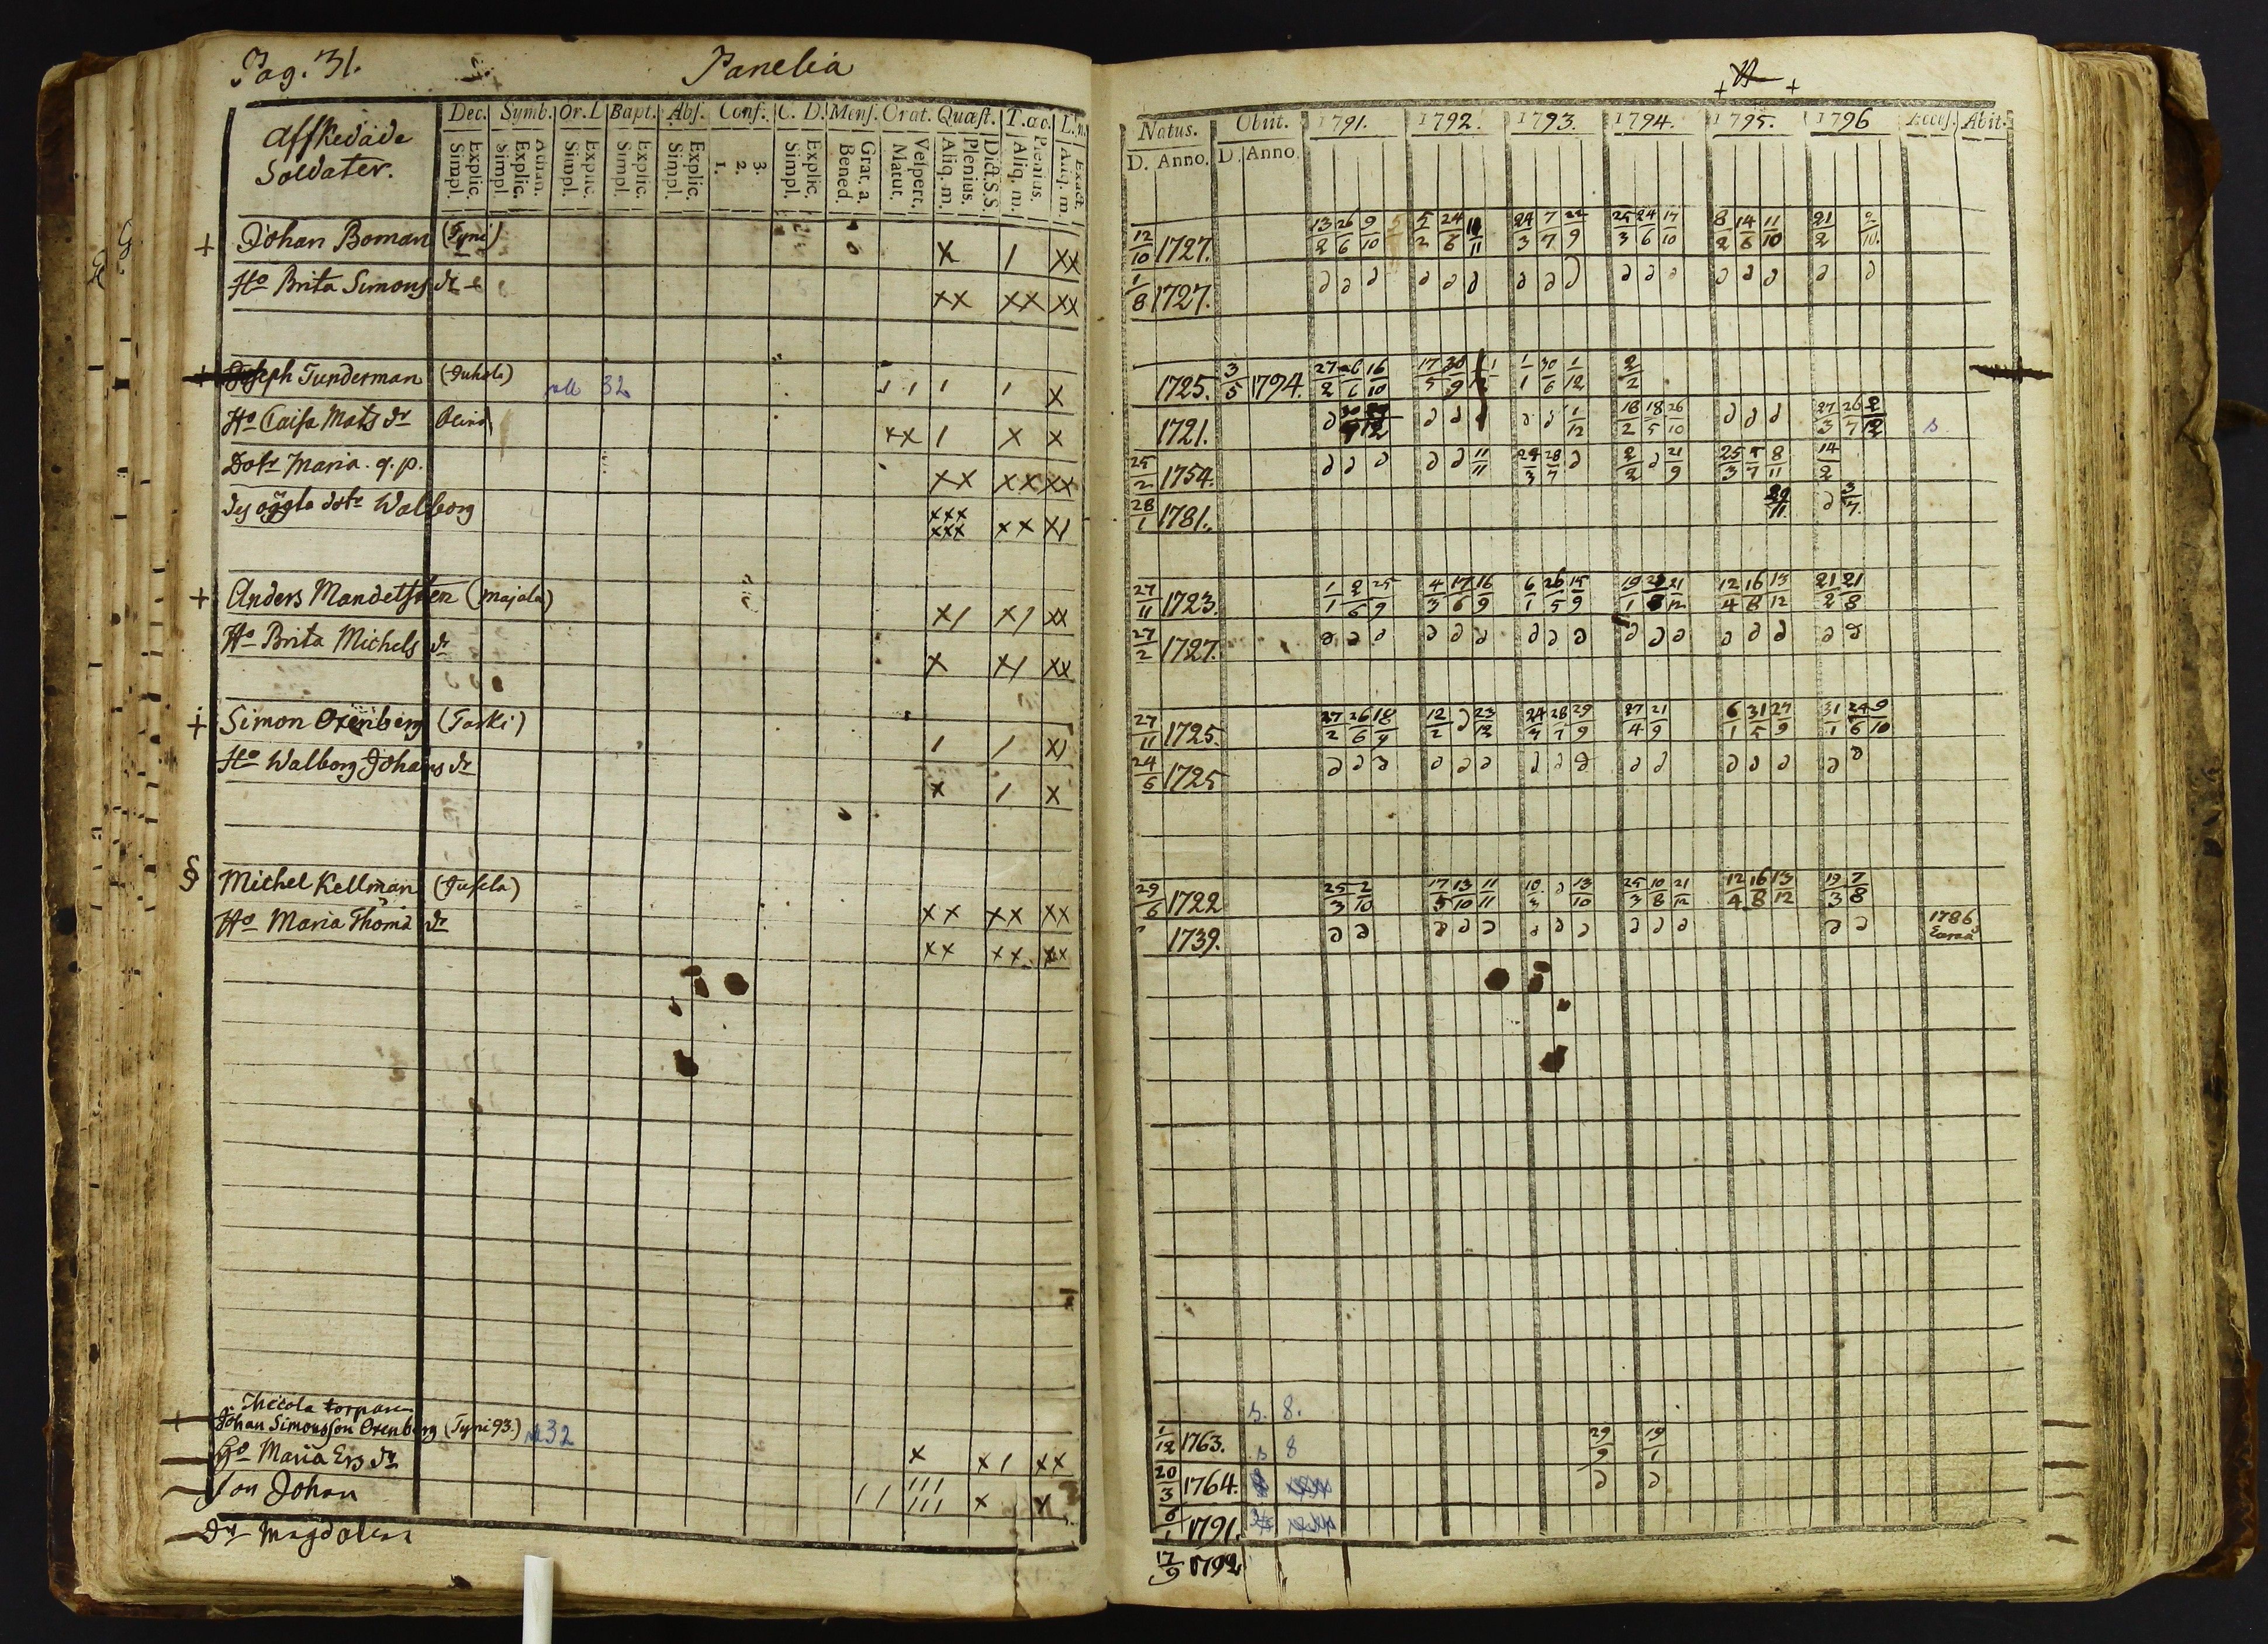 Pag. 31. Panelia
Affskedade Soldater. Dec. Symb. Or. D. Bapt. Abs. Conf. C. D. Mens. Orat. Quæst. T. œc. L. n.
Explic. Simpl. Athan. Explic. Simpl. Explic. Simpl. Explic. Simpl. Explic. Simpl. 3. 2. 1. Explic. Simpl. Grat. a. Bened. Vespert. Matut. Dict. S.S. Plenius. Aliq. m. Plenius. Aliq. m. Exact. Aliq. m.
Natus. Obiit. 1791. 1792. 1793. 1794. 1795. 1796 Access. Abit.
D. Anno. D. Anno.
+ Johan Boman (Tyni) X 1 XX 12/10 1727. 13/2 26/6 9/10 5/2 24/6 11 24/3 7/7 22/9 25/3 24/6 17/10 8/2 14/6 11/10 21/2 2/10.
Ho Brita Simons dr XX XX XX 1/8 1727.
+ Joseph Tunderman (Juhola) 32 1 1 1 1 X 1725. 3/5 1794. 27/2 26/6 16/10 17/5 30/9 1/1 30/6 1/12 2/2
Ho Caisa Mats dr XX 1 X X 1721. 1/12 18/2 18/5 26/10 27/3 26/7 2/12 s.
Dotr Maria. q. p. XX XX XX 25/2 1754. 11/11 24/3 28/7 2/2 21/9 25/3 5/7 8/11 14/2
des oägta dotr Walborg XXX XXX XX X1 28/1 1781. 29/11 3/7.
+ Anders Mandelsten (Majala) X1 X1 XX 27/11 1723. 1/1 2/6 25/9 4/3 17/6 16/9 6/1 26/5 15/9 19/1 21/12 12/4 16/8 13/12 21/2 21/8
Ho Brita Michels dr X X1 XX 27/2 1727.
+ Simon Oxenberg (Taski) 1 1 X1 27/11 1725. 27/2 26/6 18/9 12/2 23/12 24/3 28/7 29/9 27/4 21/9 6/1 31/5 27/9 31/1 24/6 9/10
Ho Walborg Johans dr X 1 X 24/6 1725
§ Michel Kellman (Jusela) XX XX XX 29/6 1722 25/3 2/10 17/5 13/10 11/11 10/3 13/10 25/3 10/8 21/12 12/4 16/8 13/12 19/3 7/8
Ho Maria Thoms dr XX XX XX 1739. 1786 Eura
Torpare
Johan Simonsson Oxenberg (Tyni 93.) 32 X X1 XX 1/12 1763. s. 8. 29/9 19/1
Ho Maria Ers dr 111 111 X X 20/3 1764. s 8
Son Johan 6/1 1791.
Dr Magdalena 17/9 1792